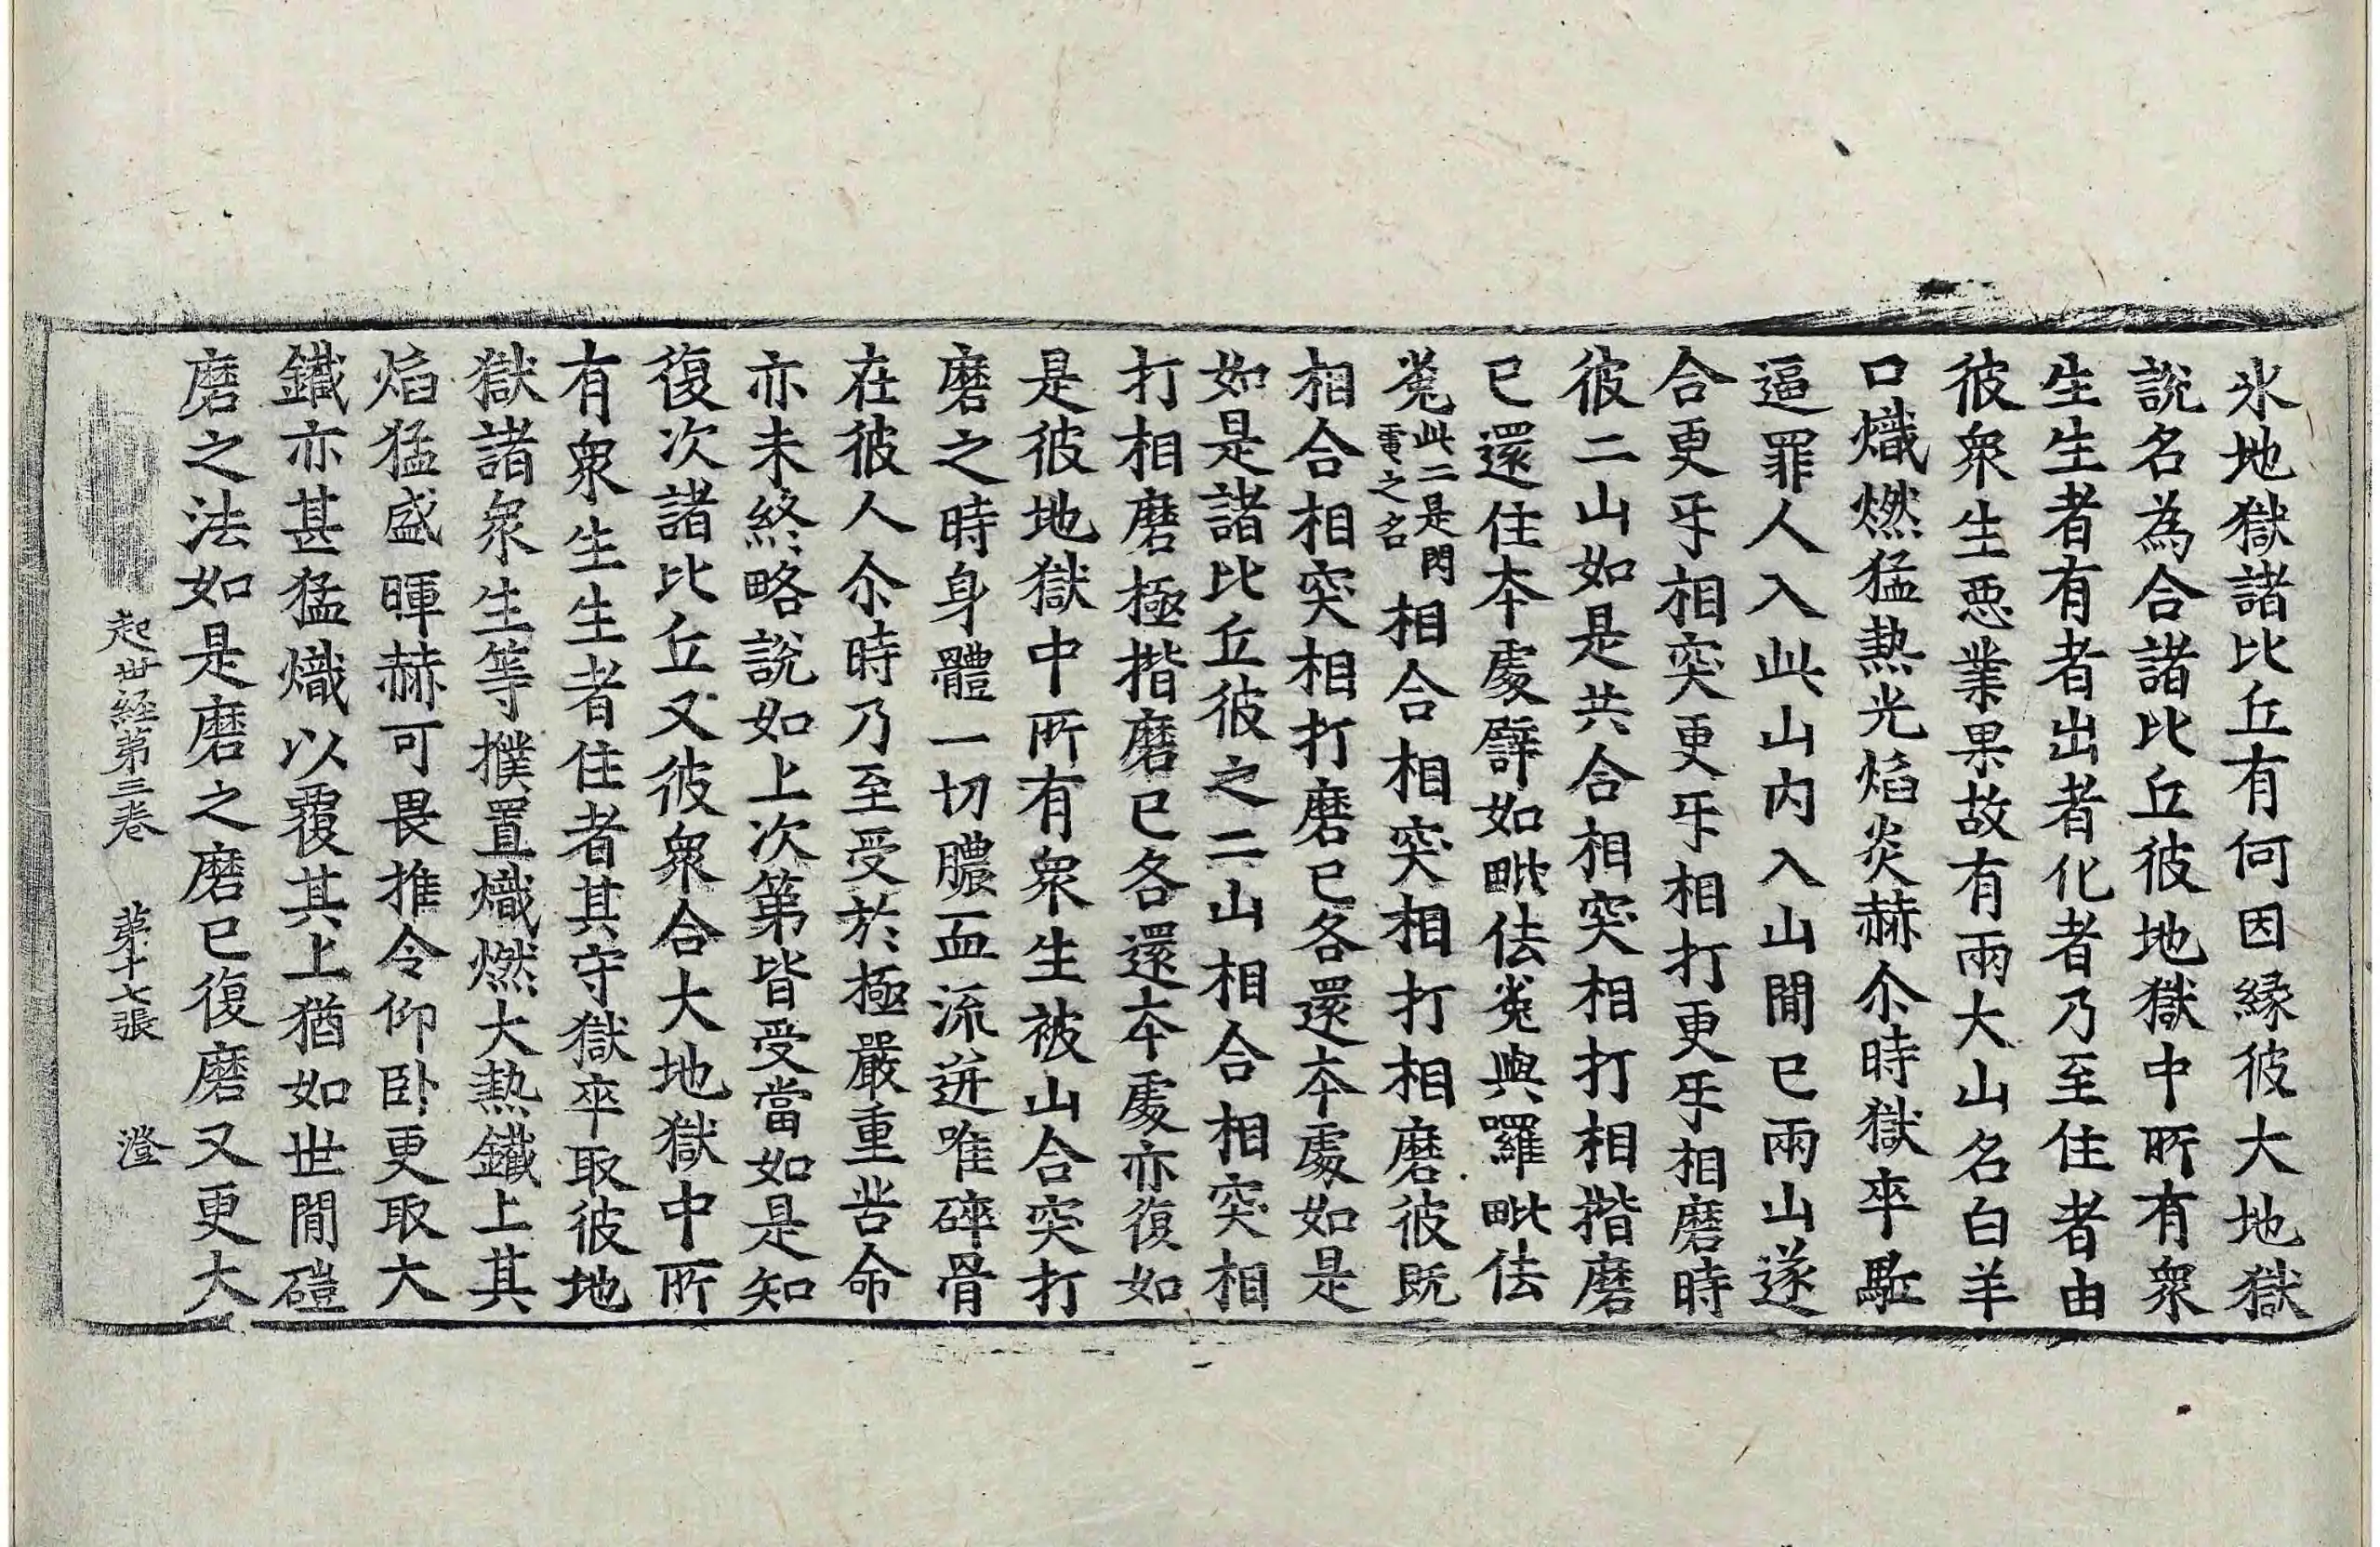 氷地獄諸比丘有何因縁彼大地獄
說名為合諸比丘彼地獄中所有衆
生生者有者出者化者乃至住者由
彼衆生惡業果故有兩大山名白羊
口熾燃猛熱光焰炎赫尒時獄卒駈
逼罪人入此山内入山間已兩山遂
合更㸦相突更㸦相打更㸦相磨時
彼二山如是共合相突相打相揩磨
已還住本處譬如毗佉㝹與羅毗佉
㝹此二是閃電之名相合相突相打相磨彼既
相合相突相打磨已各還本處如是
如是諸比丘彼之二山相合相突相
打相磨極揩磨已各還本處亦復如
是彼地獄中所有衆生被山合突打
磨之時身體一切膿血流迸唯碎骨
在彼人尒時乃至受於極嚴重苦命
亦未終略說如上次第皆受當如是知
復次諸比丘又彼衆合大地獄中所
有衆生生者住者其守獄卒取彼地
獄諸衆生等撲置熾燃大熱鐵上其
焰猛盛暉赫可畏推令仰卧更取大
鐵亦甚猛熾以覆其上猶如世間磑
磨之法如是磨之磨已復磨又更大
起世経第三卷 第十七張 澄